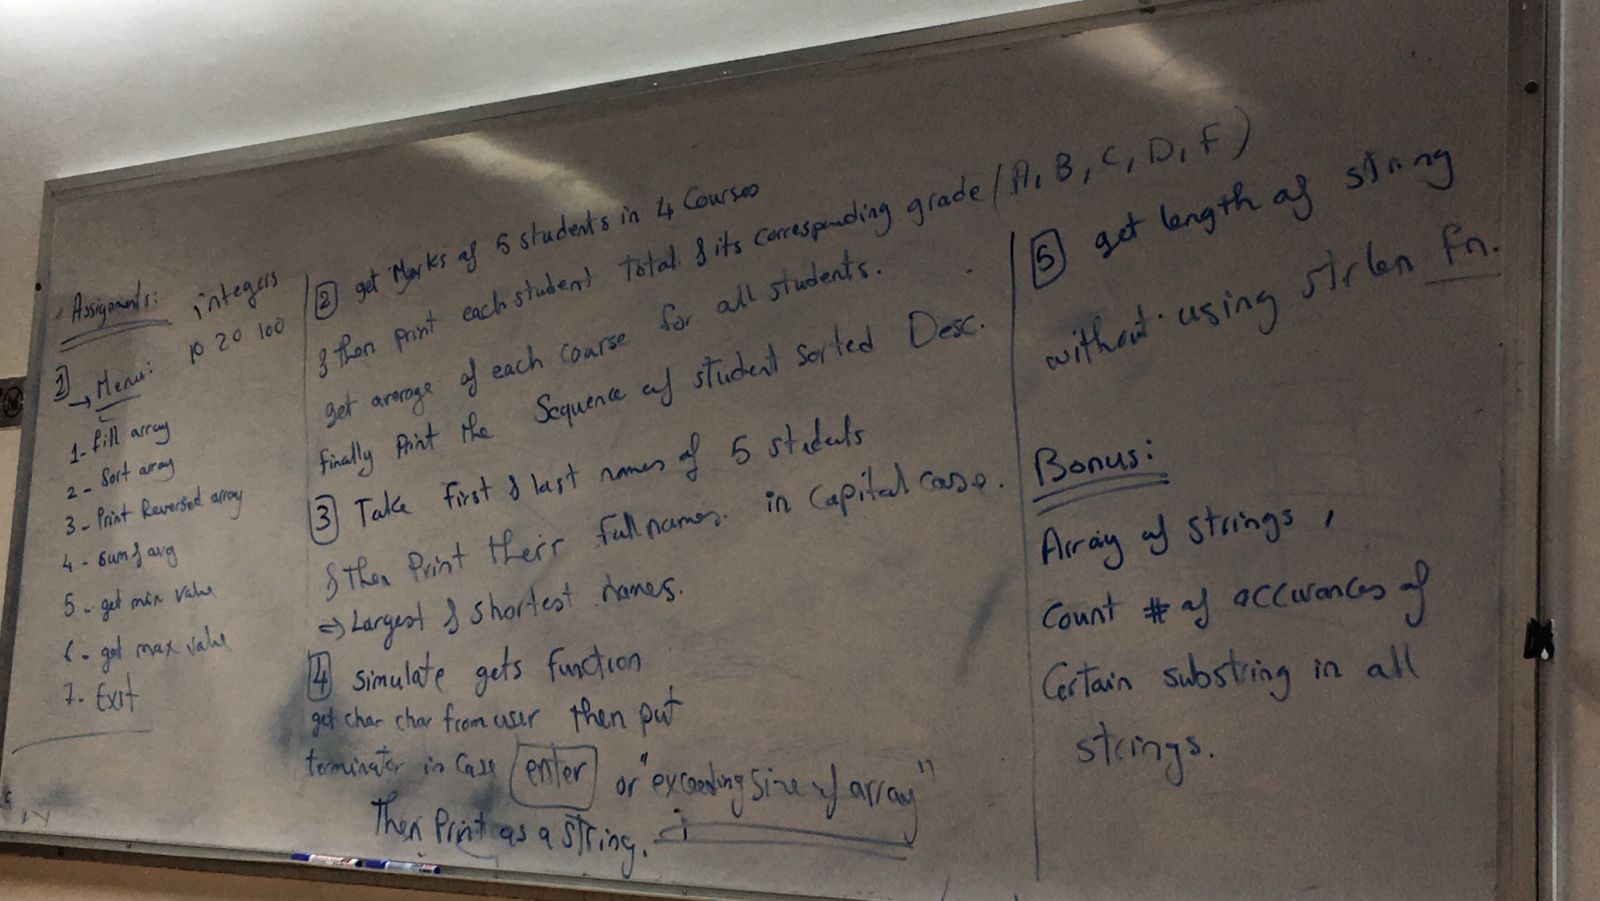 Assignments:
integers
10 20 100
1 → Menu:
1- fill array
2- Sort array
3- Print Reversed array
4- sum & avg
5- get min value
6- get max value
7- Exit
2 get Marks of 5 students in 4 Courses
& then print each student total & its corresponding grade (A, B, C, D, F)
get average of each course for all students.
finally Print the Sequence of student sorted Desc.
3 Take first & last names of 5 students
& then Print their full names in Capital case.
⇒ Largest & shortest names.
4 simulate gets function
get char char from user then put
terminator in case enter or "exceeding size of array"
Then Print as a string.
5 get length of string
without using strlen fn.
Bonus:
Array of strings,
Count # of occurances of
Certain substring in all
strings.